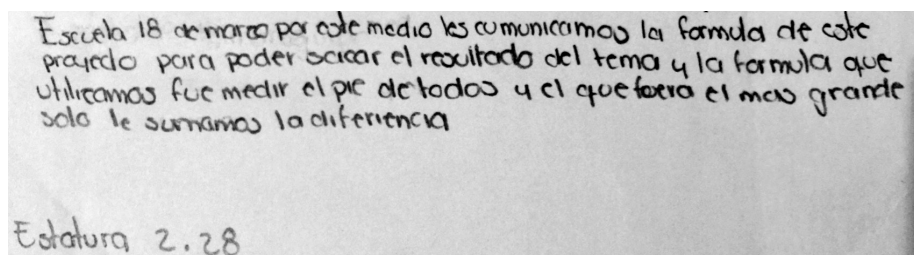 Escuela 18 de marzo por este medio les comunicamos la formula de este
proyecto para poder sacar el resultado del tema y la formula que
utilizamos fue medir el pie de todos y el que fuera el mas grande
solo le sumamos la diferiencia
Estatura 2.28